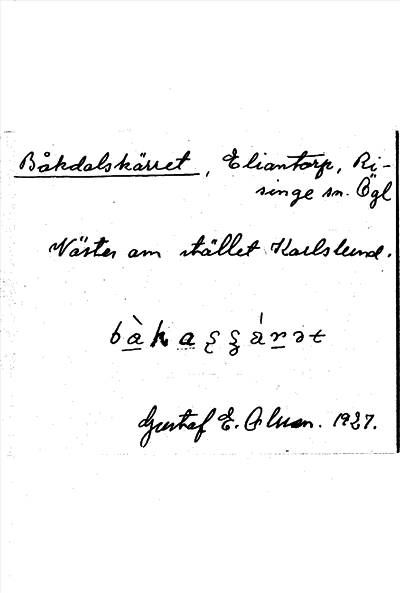 Båkdalskärret, Eliantorp, Ri-
singe sn. Ögl
Väster om stället Karlslund.
Gustaf E. 1927.